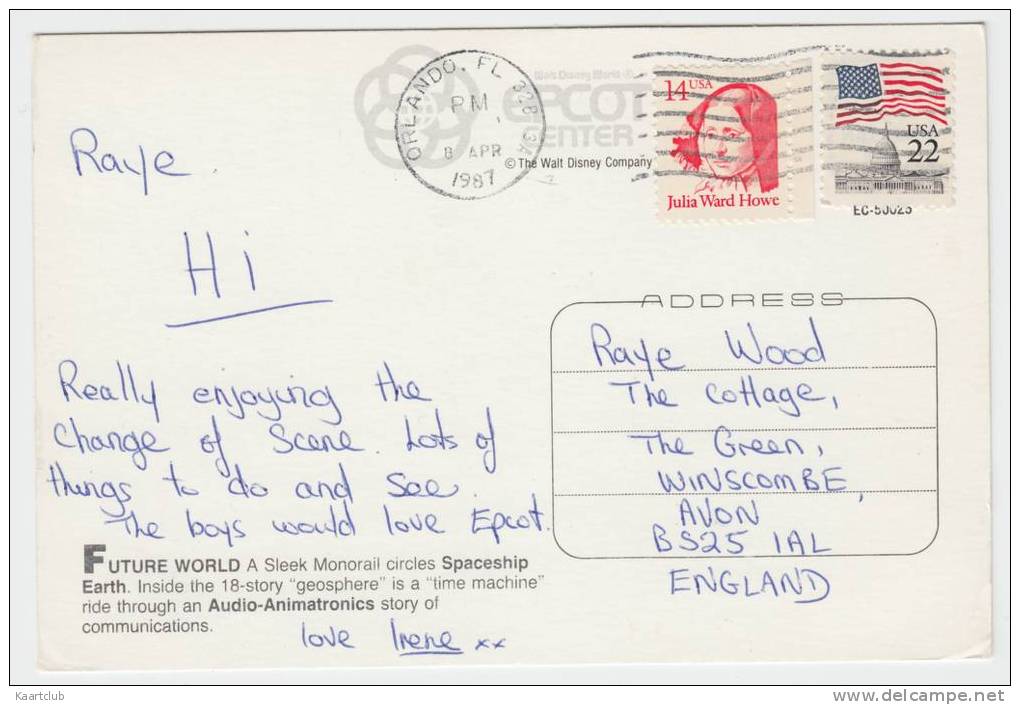 Walt Disney World ®
EPCOT
CENTER
© The Walt Disney Company
ORLANDO, FL 328
PM
8 APR
1987
14 USA
Julia Ward Howe
USA
22
Raye
Hi
Really enjoying the
change of scene. Lots of
things to do and see.
The boys would love Epcot.
FUTURE WORLD A Sleek Monorail circles Spaceship
Earth. Inside the 18-story "geosphere" is a "time machine"
ride through an Audio-Animatronics story of
communications.
love Irene xx
ADDRESS
Raye Wood
The Cottage,
The Green,
WINSCOMBE,
AVON
BS25 1AL
ENGLAND
Kaartclub
www.delcampe.net